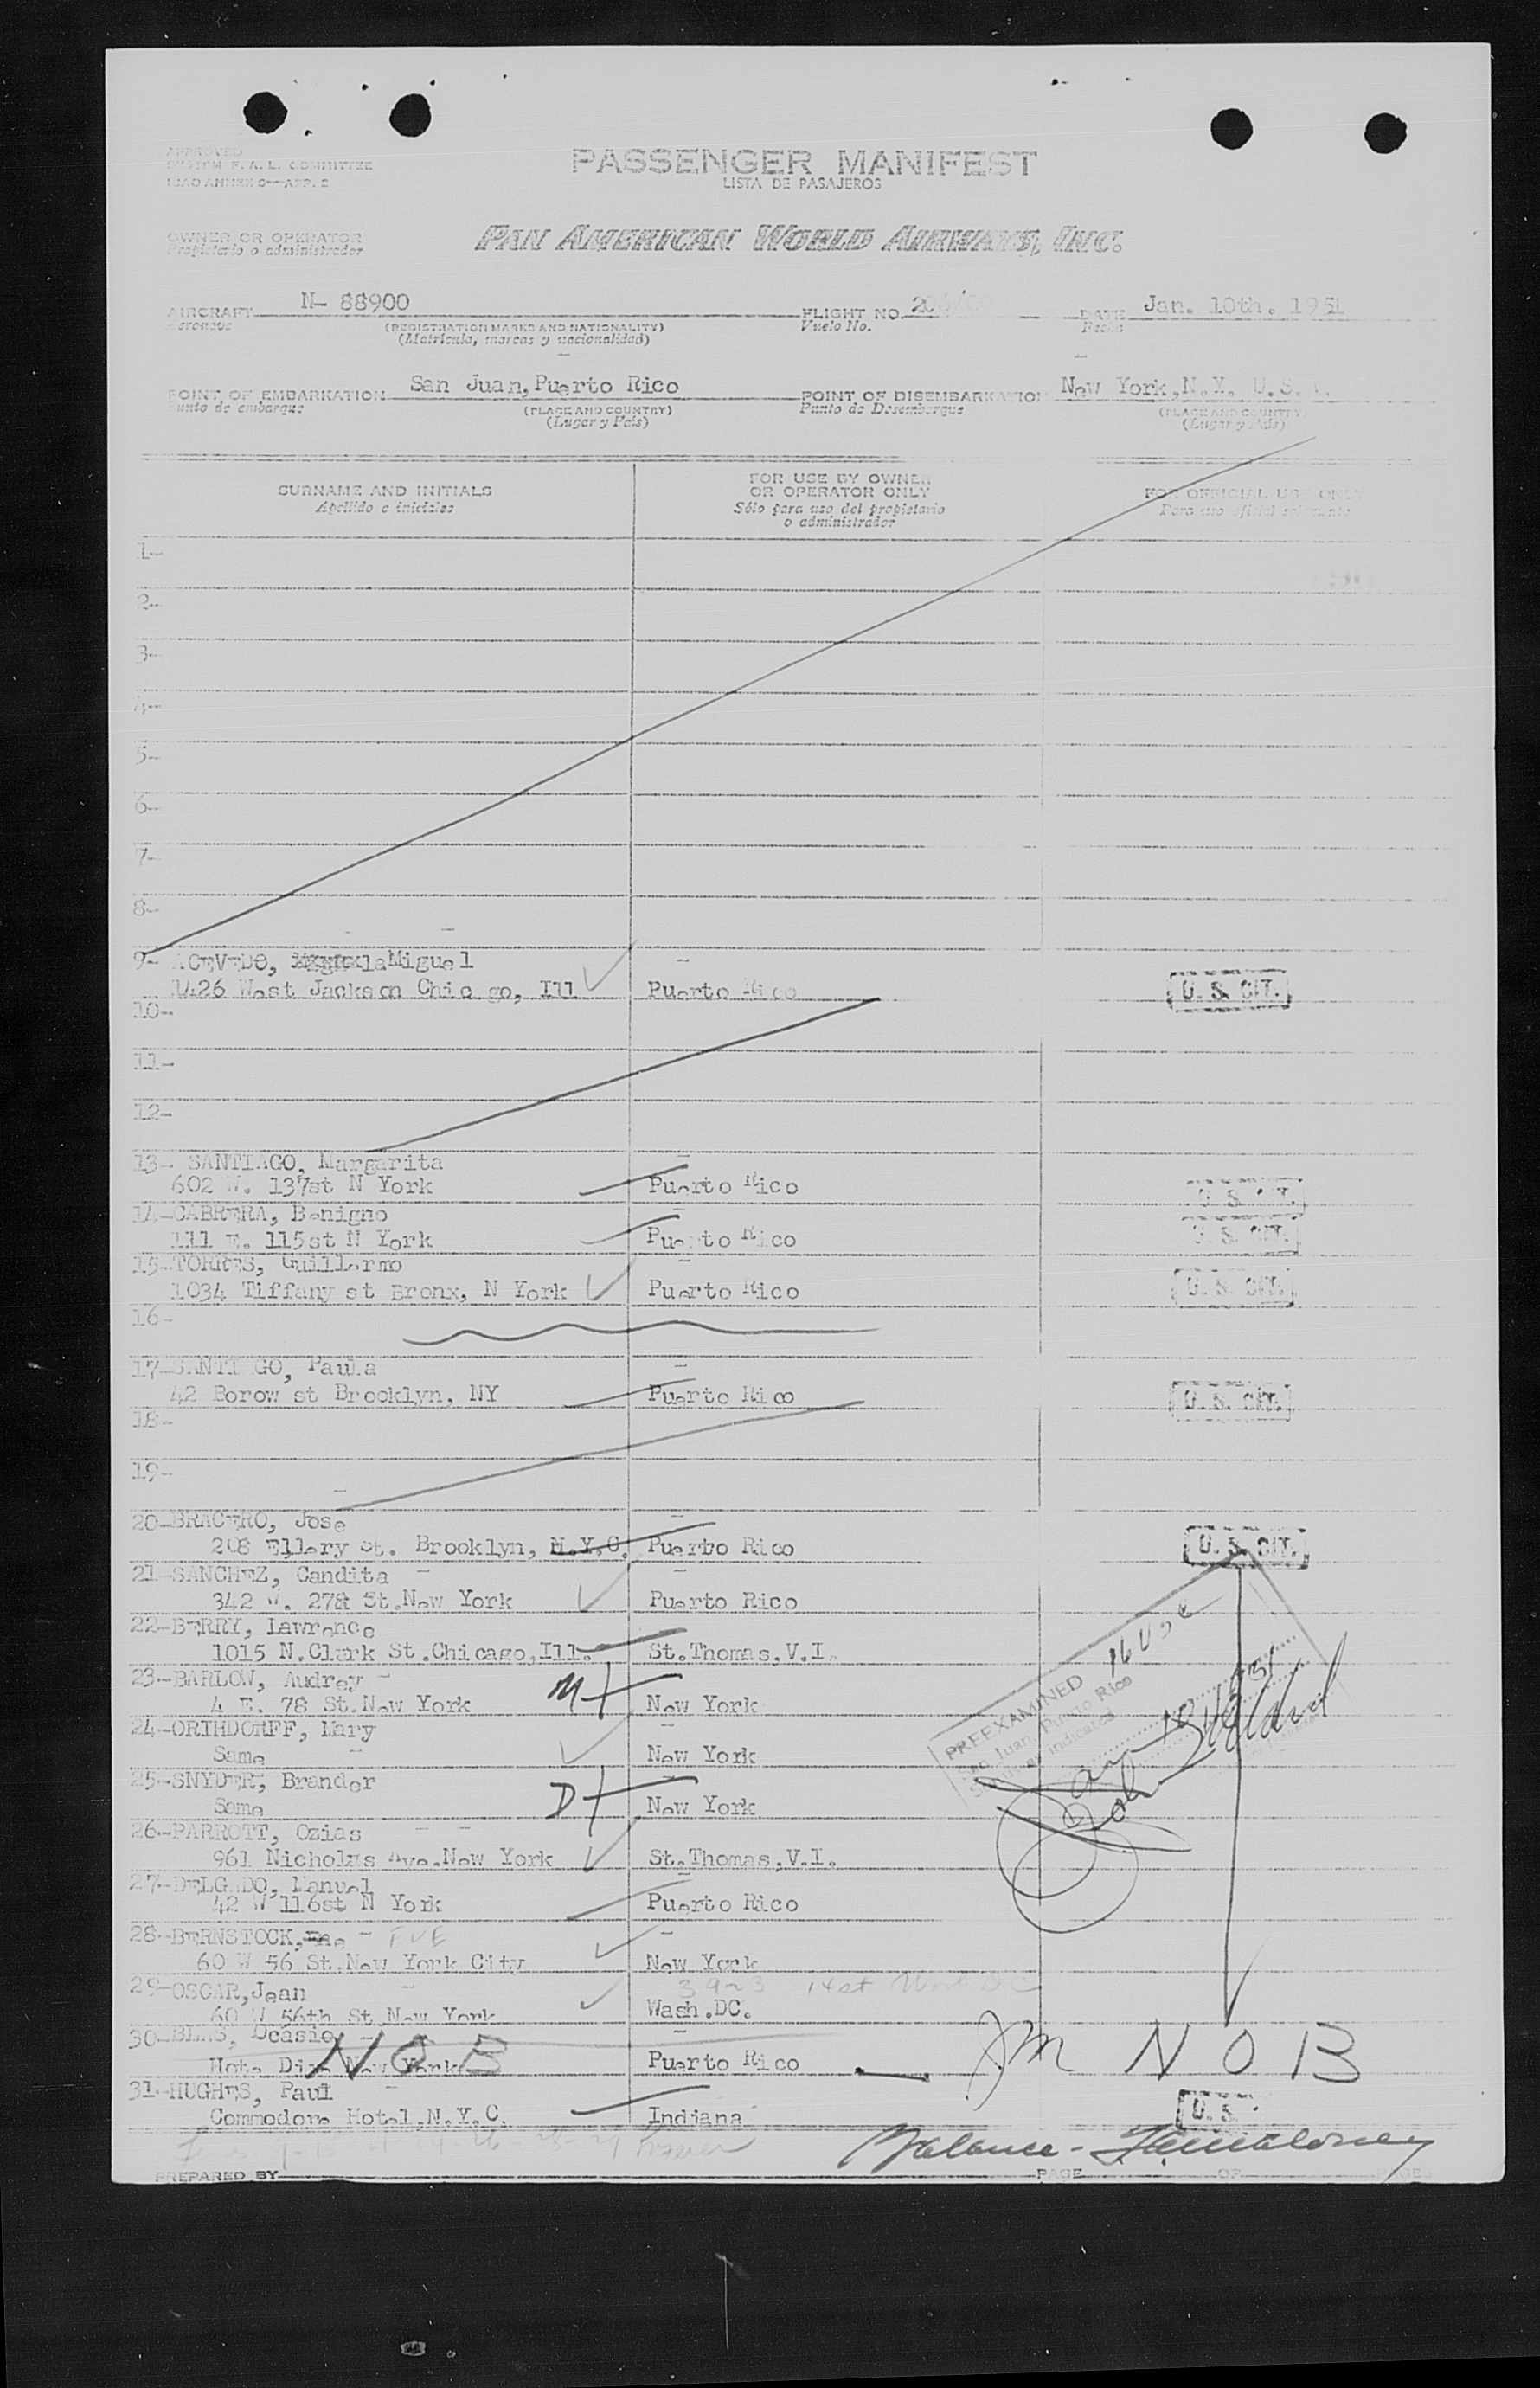 APPROVED
SYSTEM F. A. L. COMMITTEE
ICAO ANNEX 9—APP. C
PASSENGER MANIFEST
LISTA DE PASAJEROS
OWNER OR OPERATOR
Propietario o administrador
PAN AMERICAN WORLD AIRWAYS, INC.
AIRCRAFT N- 88900
Aeronave
(REGISTRATION MARKS AND NATIONALITY)
(Matricula, marcas y nacionalidad)
FLIGHT NO. 20
Vuelo No.
DATE Jan. 10th. 1951
Fecha
POINT OF EMBARKATION San Juan, Puerto Rico
Punto de embarque
(PLACE AND COUNTRY)
(Lugar y País)
POINT OF DISEMBARKATION New York, N.Y. U.S.
Punto de Desembarque
(PLACE AND COUNTRY)
(Lugar y País)
SURNAME AND INITIALS
Apellido e iniciales
FOR USE BY OWNER
OR OPERATOR ONLY
Sólo para uso del propietario
o administrador
FOR OFFICIAL USE ONLY
Para uso oficial solamente
1-
2-
3-
4-
5-
6-
7-
8-
9- ACEVEDO, Miguel
1426 West Jackson Chicago, Ill Puerto Rico U. S. CIT.
10-
11-
12-
13- SANTIAGO, Margarita
602 W. 137st N York Puerto Rico U. S. CIT.
14- CABRERA, Benigno
111 E. 115st N York Puerto Rico U. S. CIT.
15- TORRES, Guillermo
1034 Tiffany st Bronx, N York Puerto Rico U. S. CIT.
16-
17- SANTIAGO, Paula
42 Borow st Brooklyn, NY Puerto Rico U. S. CIT.
18-
19-
20- BRACERO, Jose
208 Ellery St. Brooklyn, N.Y.C. Puerto Rico U. S. CIT.
21- SANCHEZ, Candita
342 W. 27th St. New York Puerto Rico
22- BERRY, Lawrence
1015 N. Clark St. Chicago, Ill. St. Thomas, V.I.
23- BARLOW, Audrey
4 E. 78 St. New York M New York
24- ORTHDORFF, Mary
Same New York
25- SNYDER, Brander
Same D New York
26- PARROTT, Ozias
961 Nicholas Ave. New York St. Thomas, V.I.
27- DELGADO, Manuel
42 W 116st N York Puerto Rico
28- BERNSTOCK, EVE
60 W 56 St. New York City New York
29- OSCAR, Jean 3923 14st
60 W 56th St New York Wash. DC.
30- BLAS, Ocasio
New York NOB Puerto Rico NOB
31- HUGHES, Paul
Commodore Hotel, N.Y.C. Indiana U. S.
PREEXAMINED
San Juan, Puerto Rico
Jan 10 1951
Balance -
PREPARED BY
PAGE OF PAGES